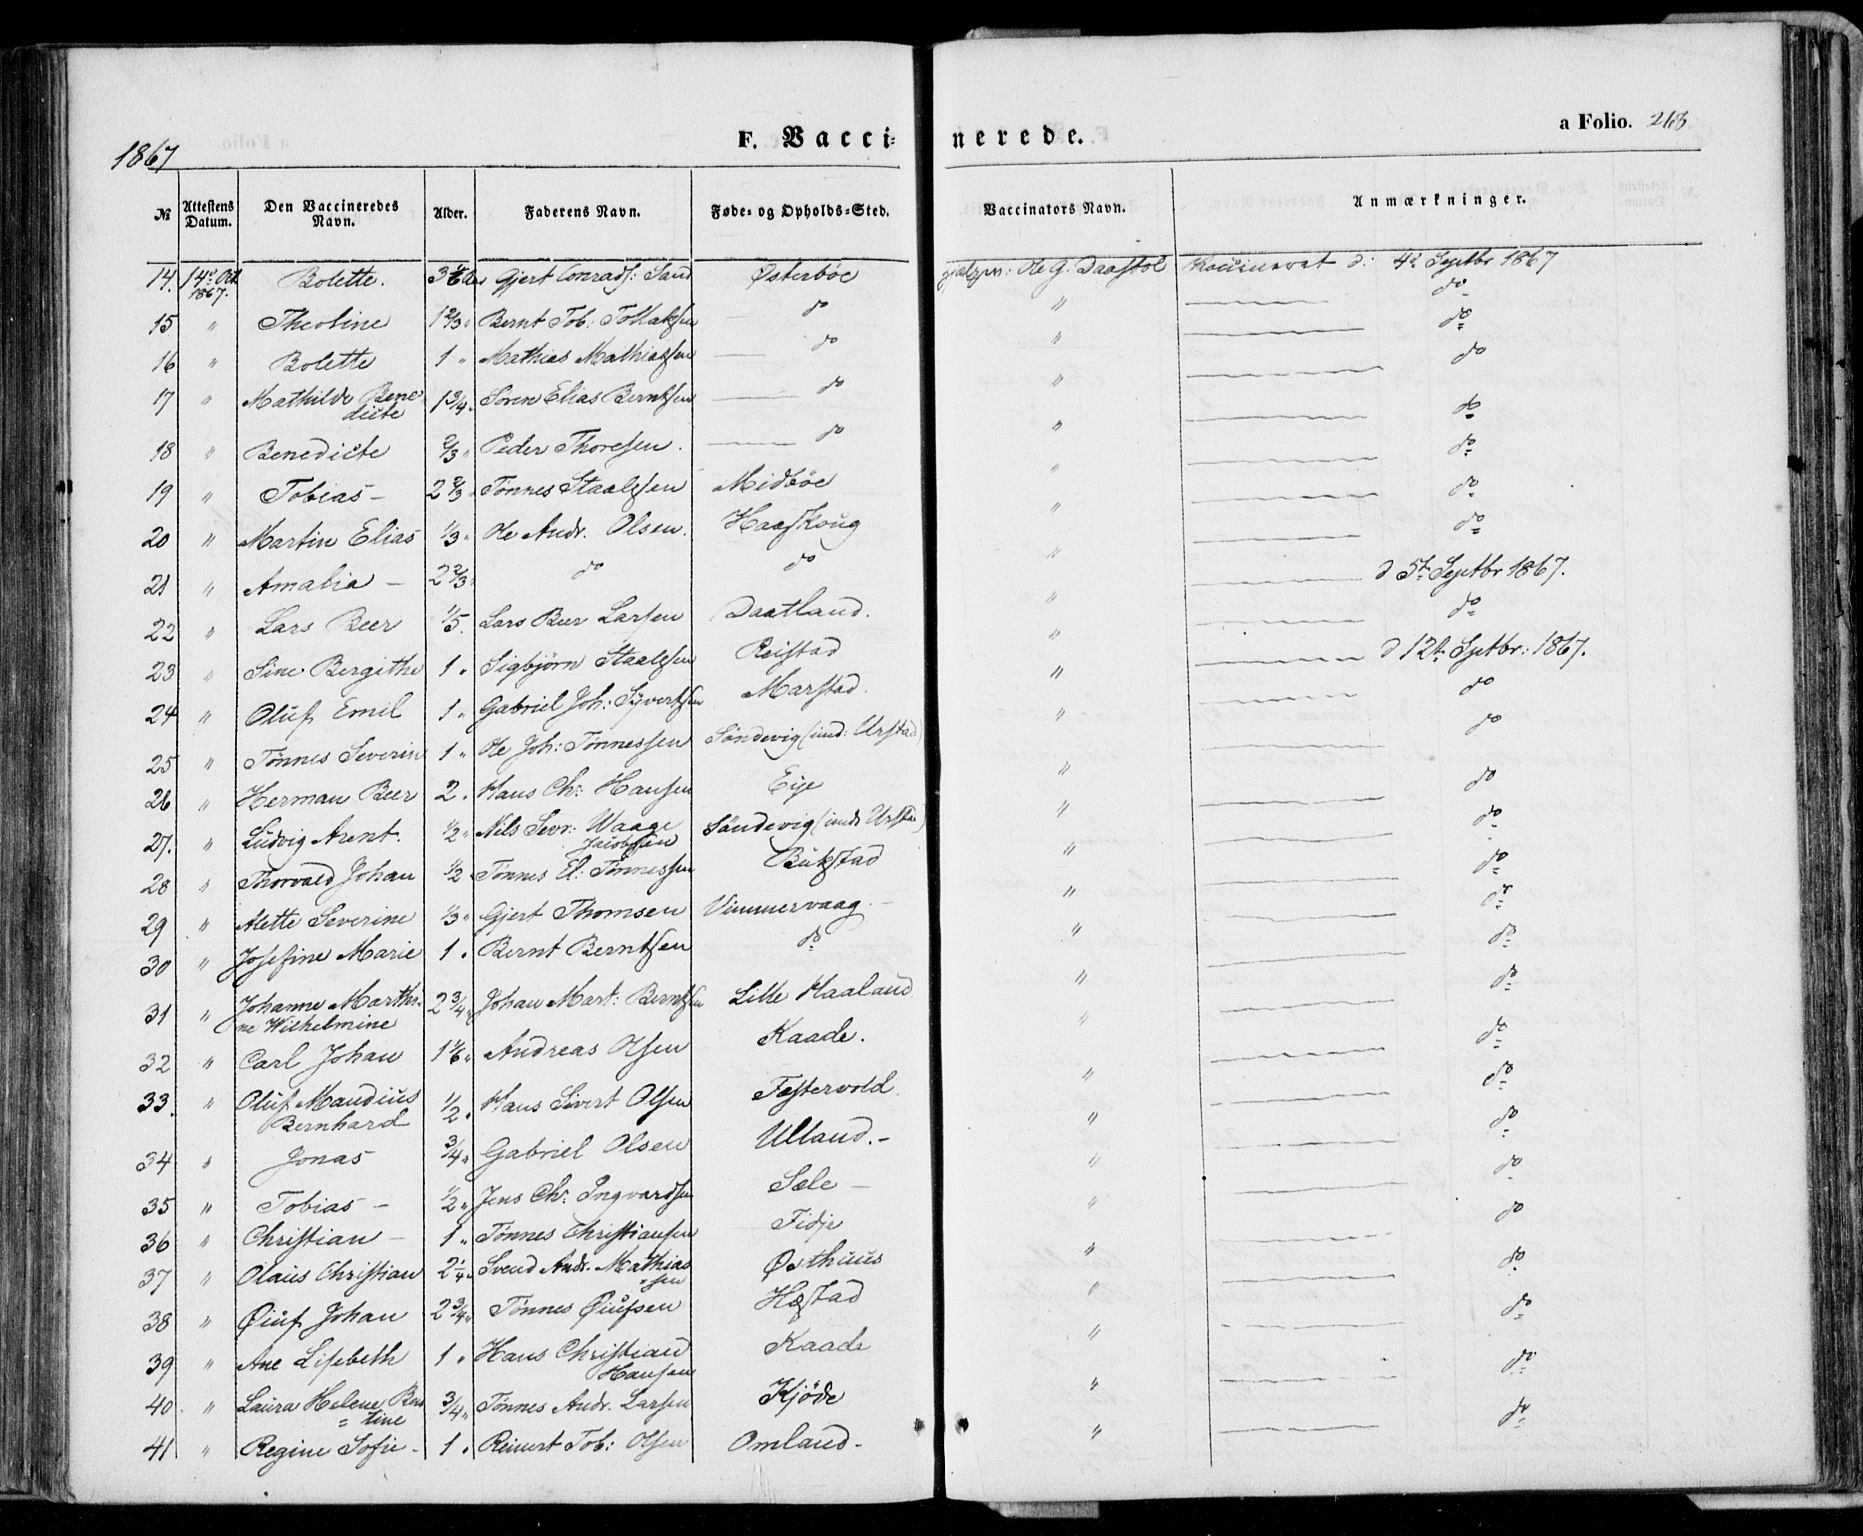 1867
F. Vacci-
nerede.
a Folio. 268.
№ Attestens Datum. Den Vaccineredes Navn. Alder. Faderens Navn. Føde- og Opholds-Sted. Vaccinators Navn. Anmærkninger.
14. 14de Oct. 1867. Bolette. Gjert Conrads: Sand Østerböe Ole G. Daastöl d: 4de Septbr 1867
15 " Theoline 1 2/3 " Bernt Tob: Tollaksen — do " — do
16 " Bolette 1 " Mathias Mathiassen — do " — do
17 " Mathilde Bene- 1 3/4 " Sören Elias Berntsen — do " — do
dicte
18 " Benedicte 2/3 " Peder Thoresen. — do " — do
19 " Tobias — 2 2/3 " Tönnes Staalesen Midböe " — do
20 " Martin Elias 1/3 " Ole Andr. Olsen. Haaskoug " — do
21 " Amalia — 2 2/3 " do do " — d 5te Septbr 1867.
22 " Lars Beer 1/5 " Lars Beer Larsen Daatland. " — do
23 " Sine Bergithe 1 " Sigbjörn Staalesen Reistad " — d 12te Septbr: 1867.
24 " Oluf Emil 1 " Gabriel Joh: Syvertsen Marstad. " — do
25 " Tönnes Severin 1 " Ole Joh: Tönnessen Söndevig (und: Urstad) " — do
26 " Herman Beer 2 " Hans Chr: Hansen Eije " — do
27. " Ludvig Arent. 1/2 " Nils Sevr: Waage Söndevig (und: Urstad) " — do
Jacobsen
28 " Thorvald Johan 1/2 " Tönnes El: Tönnessen Bukstad " — do
29 " Alette Severine 1/3 " Gjert Thomsen Vimmervaag. — " — do
30 " Josefine Marie 1 " Bernt Berntsen do " — do
31 " Johanne Marthi- 2 3/4 " Johan Mart: Berntsen Lille Haaland " — do
ne Wilhelmine
32 " Carl Johan 1 1/6 " Andreas Olsen Kaade. " — do
33. " Oluf Maudius 1/2 " Hans Sivert Olsen Fæstervold. " — do
Bernhard
34 " Jonas 3/4 " Gabriel Olsen Ulland. — " — do
35 " Tobias — 1/2 " Jens Chr: Ingvardsen Sele — " — do
36 " Christian — 1 " Tönnes Christiansen Fidje " — do
37 " Olaus Christian 2 1/4 " Svend Andr. Mathias Østhuus " — do
=sen
38 " Øiuf Johan 2 3/4 " Tönnes Øiufsen Hæstad " — do
39 " Ane Lisebeth 1 " Hans Christian Kaade " — do
Hansen
40 " Laura Helene 3/4 " Tönnes Andr. Larsen Kjöde " — do
= tine
41 " Regine Sofie — 1 " Reinert Tob: Olsen Omland — " — do